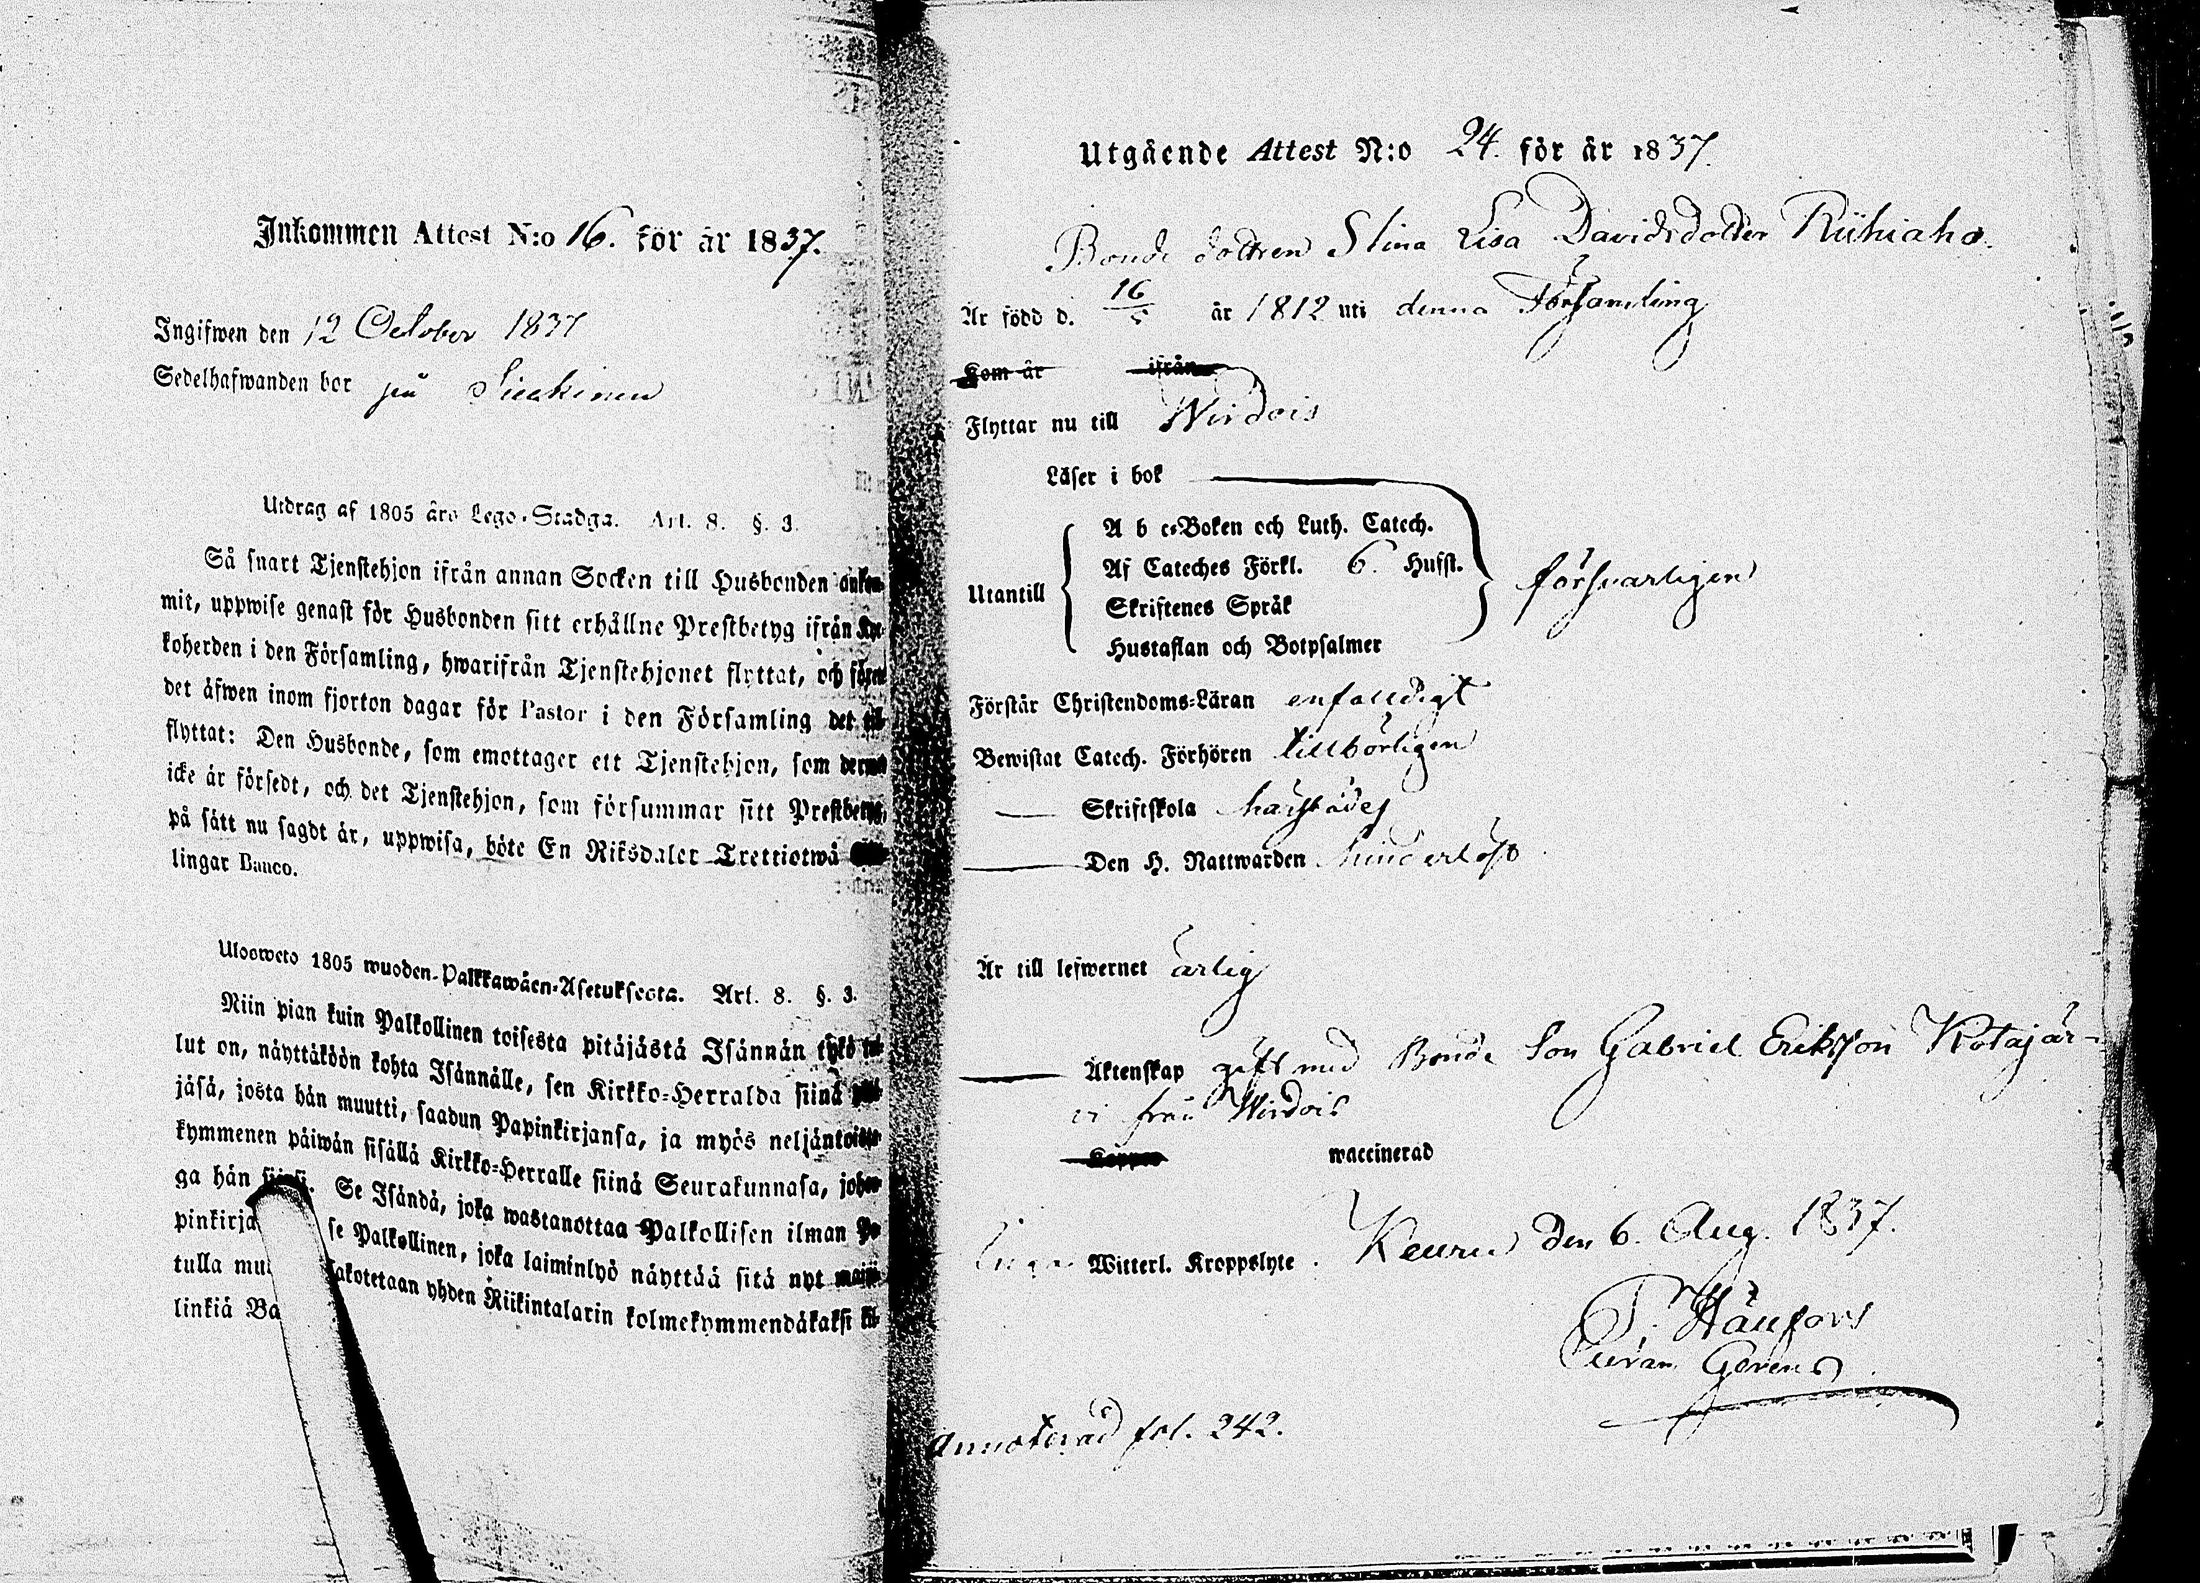 Inkommen Attest N:o 16. för år 1837.
Ingifwen den 12 October 1837
Sedelhafwanden bor på
Utdrag af 1805 års Lego-Stadga. Art. 8. §. 3.
Så snart Tjenstehjon ifrån annan Socken till Husbonden ankom-
mit, uppwise genast för Husbonden sitt erhållne Prestbetyg ifrån Kyr-
koherden i den Församling, hwarifrån Tjenstehjonet flyttat, och
det äfwen inom fjorton dagar för Pastor i den Församling det til-
flyttat: Den Husbonde, som emottager ett Tjenstehjon, som dermed
icke är försedt, och det Tjenstehjon, som försummar sitt Prestbetyg,
på sätt nu sagdt är, uppwisa, böte En Riksdaler Trettiotwå
lingar Banco.
Ulosweto 1805 wuoden Palkkawäen-Asetuksesta. Art. 8. §. 3.
Niin pian kuin Palkollinen toisesta pitäjästä Isännän tykö tul-
lut on, näyttäköön kohta Isännälle, sen Kirkko-Herralda siinä
jäsä, josta hän muutti, saadun Papinkirjansa, ja myös neljäntoista
kymmenen päiwän sisällä Kirkko-Herralle siinä Seurakunnasa, johon-
ga hän siirsi. Se Isändä, joka wastanottaa Palkollisen ilman Pa-
pinkirja se Palkollinen, joka laiminlyö näyttää sitä nyt
tulla mu akotetaan yhden Riikintalarin kolmekymmendäkaksi kil-
linkiä Ba
Utgående Attest N:o 24. för år 1837.
Bonde dottren Stina Lisa Davidsdotter Riihiaho
Är född d. 16/5 år 1812 uti denna Församling
Kom år ifrån
Flyttar nu till Wirdois
Läser i bok
A b c-Boken och Luth. Catech.
Af Cateches Förkl. 6. Hufst.
Utantill försvarligen
Skriftenes Språk
Hustaflan och Botpsalmer
Förstår Christendoms-Läran enfalldigt
Bewistat Catech. Förhören tillbörligen
Skriftskola härstädes
Den H. Nattwarden hinderlöst
Är till lefwernet ärlig
Äktenskap gift med Bonde Son Gabriel Eriksson Kotajär-
vi från Wirdois
Koppor waccinerad
Inga Witterl. Kroppslyte. Keuru den 6. Aug. 1837.
Annoterad fol. 242.